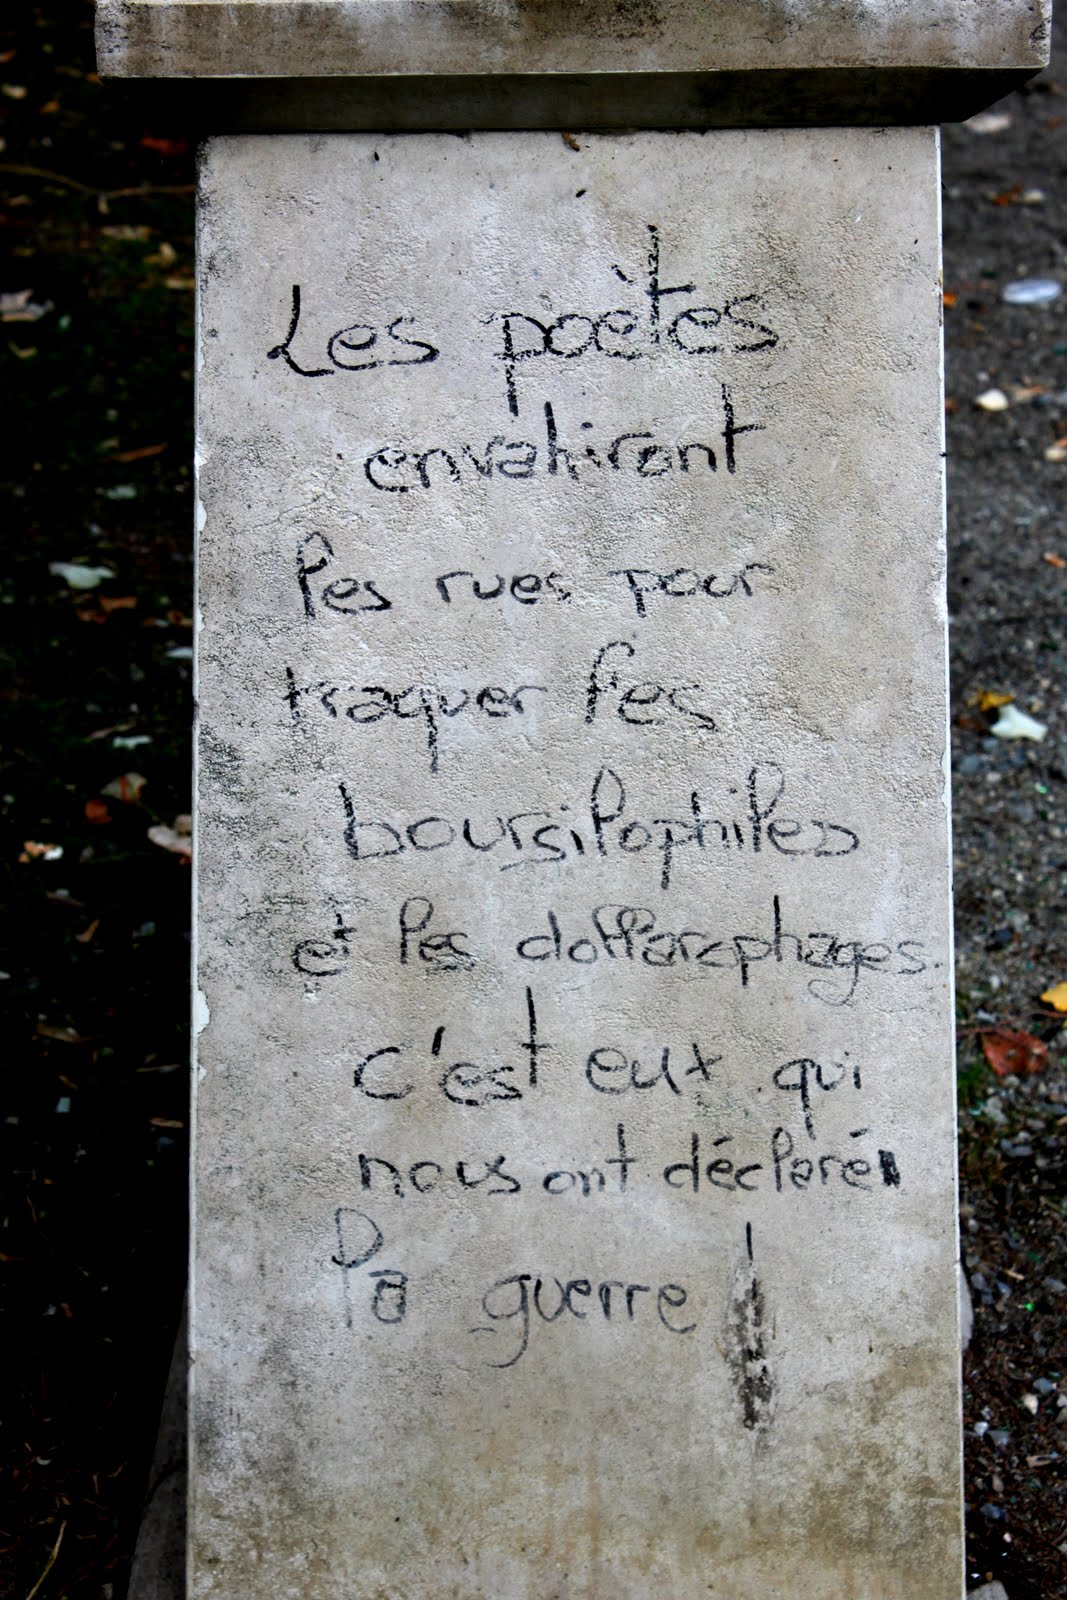 Les poètes
envahiront
les rues pour
traquer les
boursilophiles
et les dollaraphages.
c'est eux qui
nous ont déclaré
la guerre !